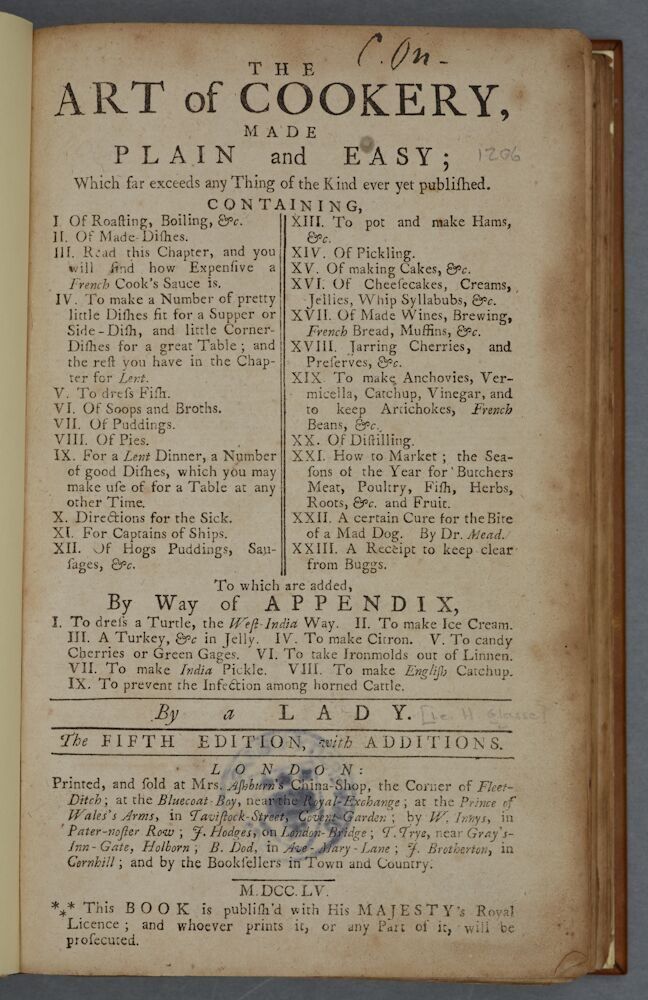 C. On-
THE
ART of COOKERY,
MADE
PLAIN and EASY;
1206
Which far exceeds any Thing of the Kind ever yet publiſhed.
CONTAINING,
I Of Roaſting, Boiling, &c.
II. Of Made-Diſhes.
III. Read this Chapter, and you
will find how Expenſive a
French Cook's Sauce is.
IV. To make a Number of pretty
little Diſhes fit for a Supper or
Side-Diſh, and little Corner-
Diſhes for a great Table; and
the reſt you have in the Chap-
ter for Lent.
V. To dreſs Fiſh.
VI. Of Soops and Broths.
VII. Of Puddings.
VIII. Of Pies.
IX. For a Lent Dinner, a Number
of good Diſhes, which you may
make uſe of for a Table at any
other Time.
X. Directions for the Sick.
XI. For Captains of Ships.
XII. Of Hogs Puddings, Sau-
ſages, &c.
XIII. To pot and make Hams,
&c.
XIV. Of Pickling.
XV. Of making Cakes, &c.
XVI. Of Cheeſecakes, Creams,
Jellies, Whip Syllabubs, &c.
XVII. Of Made Wines, Brewing,
French Bread, Muffins, &c.
XVIII. Jarring Cherries, and
Preſerves, &c.
XIX. To make Anchovies, Ver-
micella, Catchup, Vinegar, and
to keep Artichokes, French
Beans, &c.
XX. Of Diſtilling.
XXI. How to Market; the Sea-
ſons of the Year for Butchers
Meat, Poultry, Fiſh, Herbs,
Roots, &c. and Fruit.
XXII. A certain Cure for the Bite
of a Mad Dog. By Dr. Mead.
XXIII. A Receipt to keep clear
from Buggs.
To which are added,
By Way of APPENDIX,
I. To dreſs a Turtle, the Weſt-India Way. II. To make Ice Cream.
III. A Turkey, &c in Jelly. IV. To make Citron. V. To candy
Cherries or Green Gages. VI. To take Ironmolds out of Linnen.
VII. To make India Pickle. VIII. To make Engliſh Catchup.
IX. To prevent the Infection among horned Cattle.
By a LADY. [i.e. H Glasse]
The FIFTH EDITION, with ADDITIONS.
LONDON:
Printed, and ſold at Mrs. Aſhburn's China-Shop, the Corner of Fleet-
Ditch; at the Bluecoat-Boy, near the Royal-Exchange; at the Prince of
Wales's Arms, in Taviſtock-Street, Covent-Garden; by W. Innys, in
Pater-noſter Row; J. Hodges, on London-Bridge; T. Trye, near Gray's-
Inn-Gate, Holborn; B. Dod, in Ave-Mary-Lane; J. Brotherton, in
Cornhill; and by the Bookſellers in Town and Country.
M.DCC.LV.
*⁎* This BOOK is publiſh'd with His MAJESTY's Royal
Licence; and whoever prints it, or any Part of it, will be
proſecuted.